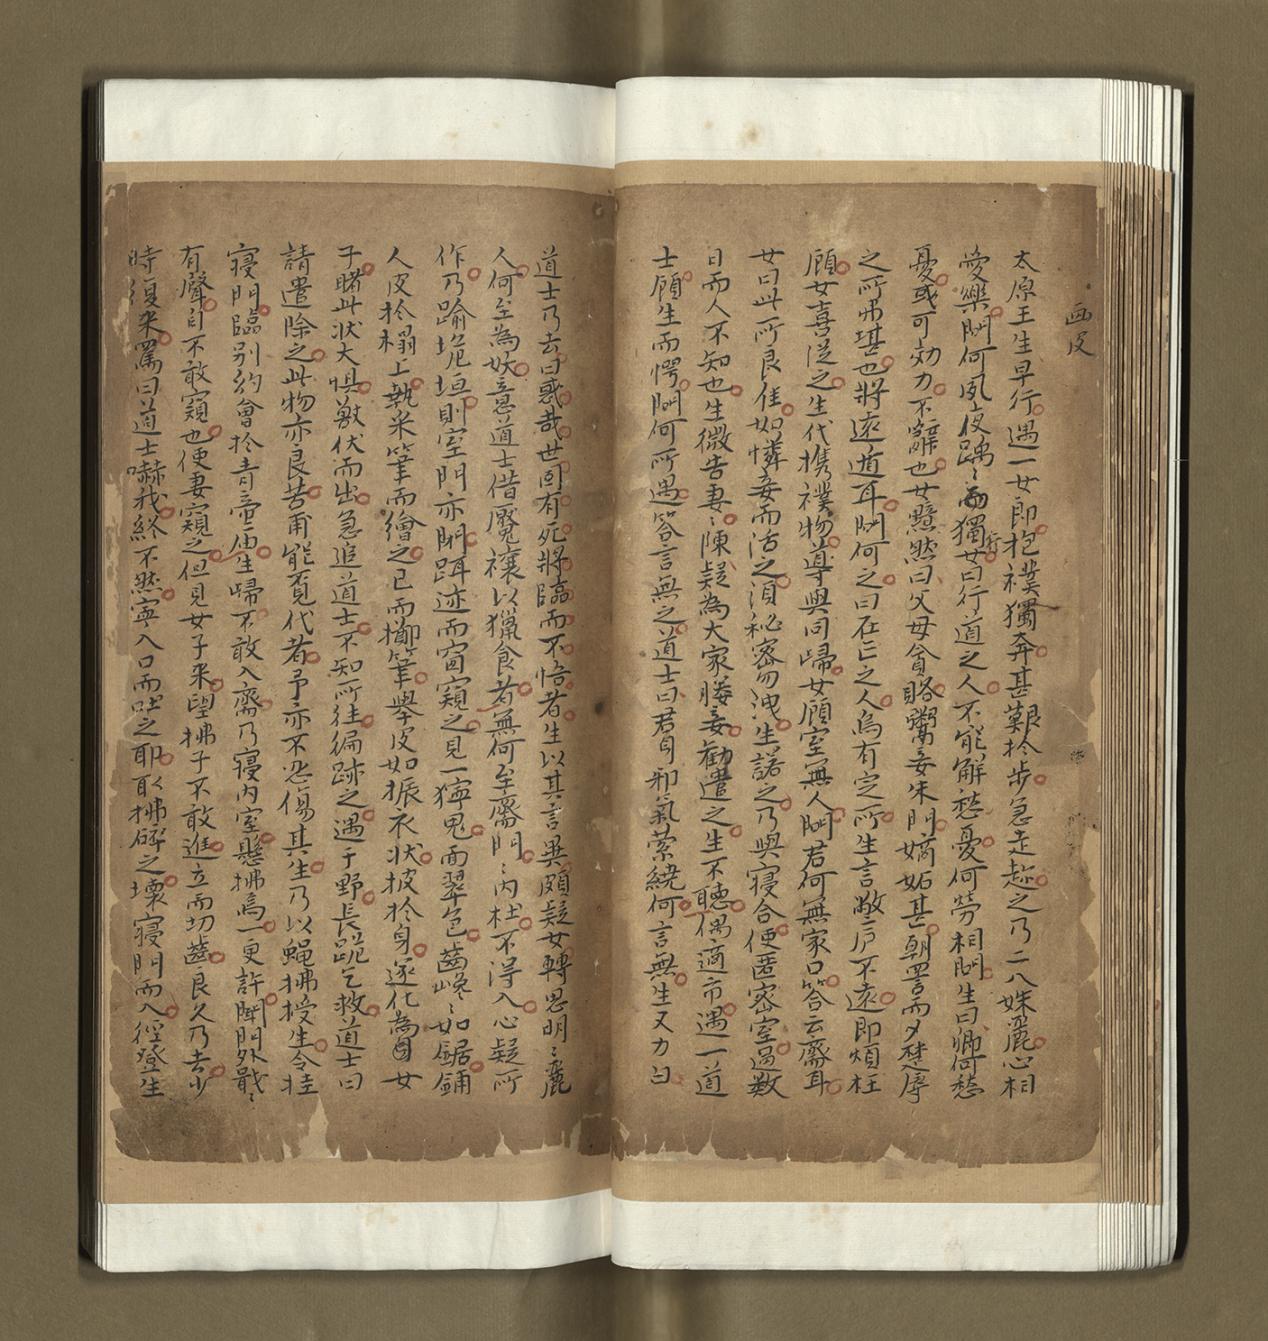 画皮
太原王生早行遇一女郎抱襆獨奔甚艱扵步急走趂之乃二八姝麗心相
愛樂問何夙夜踽〻獨行女曰行道之人不能解愁憂何勞相問生曰卿何愁
憂或可効力不辭也女黯然曰父母貪賂鬻妾朱門嫡妬甚朝詈而夕楚辱
之所弗堪也將遠遁耳問何之曰在亡之人烏有定所生言敝廬不遠即煩枉
顧女喜從之生代携襆物導與同歸女顧室無人問君何無家口答云齋耳
女曰此所良佳如憐妾而活之須秘密勿洩生諾之乃與寢合使匿密室過數
日而人不知也生微告妻〻陳疑為大家媵妾勸遣之生不聽偶適市遇一道
士顧生而愕問何所遇答言無之道士曰君身邪氣縈繞何言無生又力白
道士乃去曰惑哉世固有死將臨而不悟者生以其言異頗疑女轉思明〻麗
人何至為妖意道士借魘禳以獵食者無何至齋門〻內杜不得入心疑所
作乃踰垝垣則室門亦閉躡迹而窗窺之見一獰鬼面翠色齒巉〻如鋸鋪
人皮扵榻上執采筆而繪之已而擲筆舉皮如振衣狀披扵身遂化為女
子睹此狀大惧獸伏而出急追道士不知所往徧跡之遇于野長跪乞救道士曰
請遣除之此物亦良苦甫能覓代者予亦不忍傷其生乃以蠅拂授生令挂
寢門臨別約會扵青帝廟生歸不敢入齋乃寢內室懸拂焉一更許聞門外戢〻
有聲自不敢窺也使妻窺之但見女子來望拂子不敢進立而切齒良久乃去少
時復來罵曰道士嚇我終不然寧入口而吐之耶取拂碎之壞寢門而入徑登生